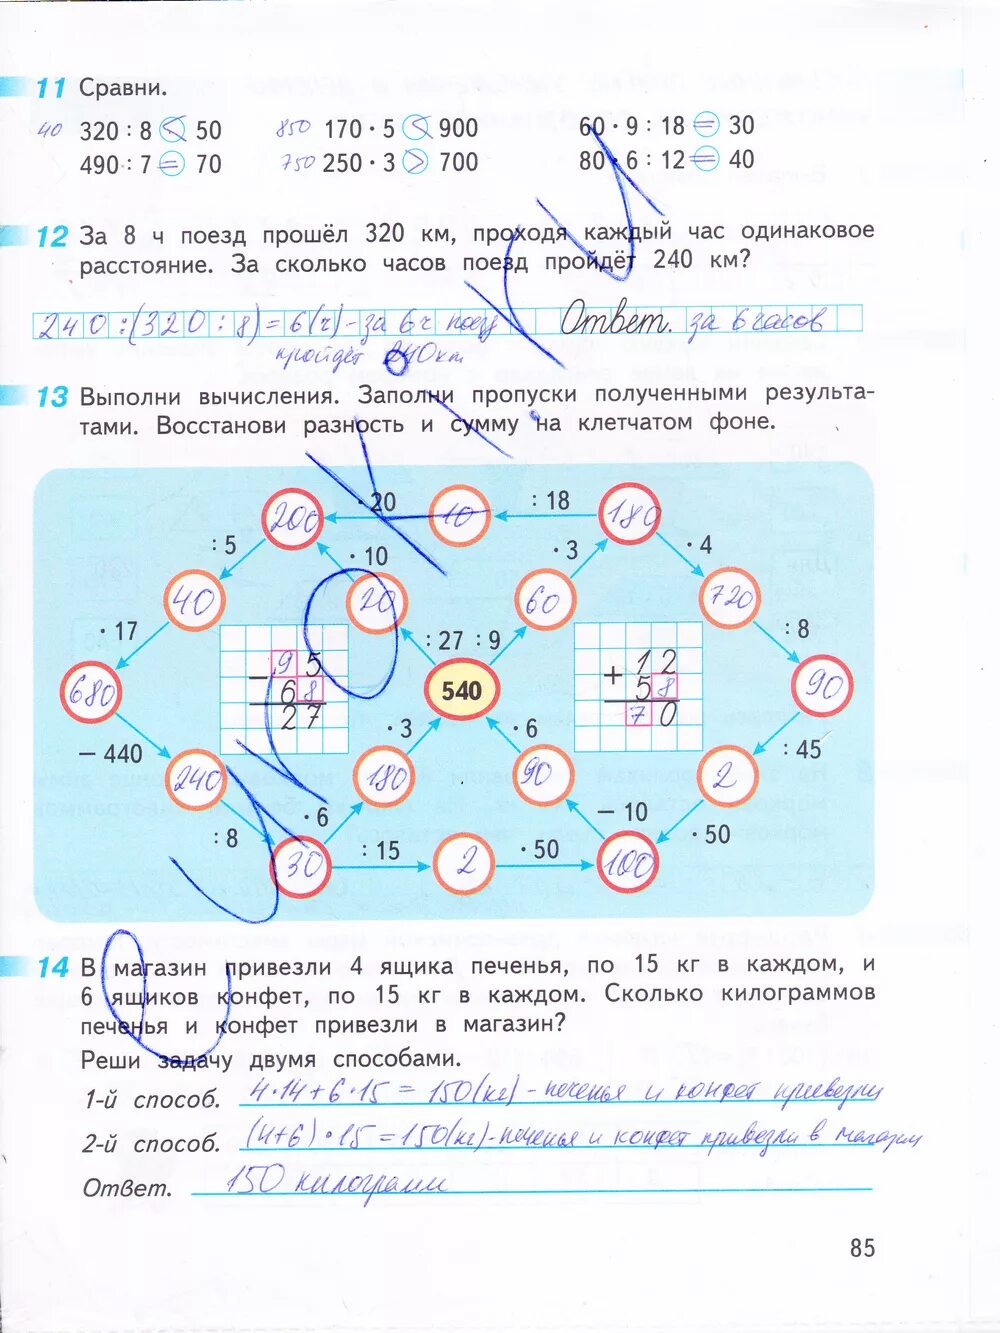 11 Сравни.
40 320 : 8 < 50 850 170 · 5 < 900 60 · 9 : 18 = 30
490 : 7 = 70 750 250 · 3 > 700 80 · 6 : 12 = 40
12 За 8 ч поезд прошёл 320 км, проходя каждый час одинаковое
расстояние. За сколько часов поезд пройдёт 240 км?
240 : (320 : 8) = 6 (ч) - за 6 ч поезд Ответ. за 6 часов
пройдёт 240 км
13 Выполни вычисления. Заполни пропуски полученными результа-
тами. Восстанови разность и сумму на клетчатом фоне.
200 · 20 10 : 18 180
: 5 · 10 · 3 · 4
40 20 60 720
· 17 : 27 : 9 : 8
95 12
680 − 68 540 + 58 90
27 70
− 440 · 3 · 6 : 45
240 180 90 2
: 8 · 6 − 10 · 50
30 : 15 2 · 50 100
14 В магазин привезли 4 ящика печенья, по 15 кг в каждом, и
6 ящиков конфет, по 15 кг в каждом. Сколько килограммов
печенья и конфет привезли в магазин?
Реши задачу двумя способами.
1-й способ. 4 · 14 + 6 · 15 = 150 (кг) - печенья и конфет привезли
2-й способ. (4+6) · 15 = 150 (кг) - печенья и конфет привезли в магазин
Ответ. 150 килограмм
85